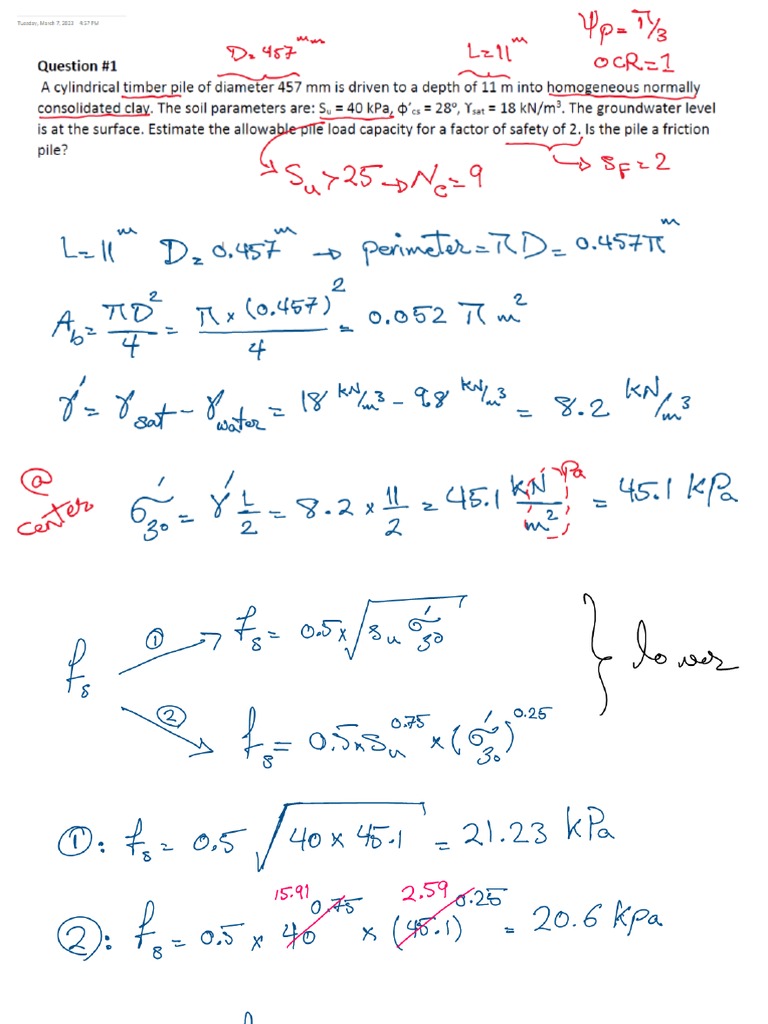 Tuesday, March 7, 2023 4:37 PM
D = 457 mm
L = 11 m
Ψp = π/3
OCR = 1
Question #1
A cylindrical timber pile of diameter 457 mm is driven to a depth of 11 m into homogeneous normally
consolidated clay. The soil parameters are: Su = 40 kPa, ϕ'cs = 28°, ϒsat = 18 kN/m³. The groundwater level
is at the surface. Estimate the allowable pile load capacity for a factor of safety of 2. Is the pile a friction
pile?
Su > 25 → Nc = 9
→ SF = 2
L = 11 m D = 0.457 m → perimeter = πD = 0.457π m
Ab = πD²/4 = π × (0.457)²/4 = 0.052 π m²
γ' = γsat - γwater = 18 kN/m³ - 9.8 kN/m³ = 8.2 kN/m³
@ center
σ'30 = γ' L/2 = 8.2 × 11/2 = 45.1 kN/m² kPa = 45.1 kPa
fs ① → fs = 0.5 × √(su σ'30)
② → fs = 0.5 × su^0.75 × (σ'30)^0.25
} lower
①: fs = 0.5 √(40 × 45.1) = 21.23 kPa
15.91 2.59
②: fs = 0.5 × 40^0.75 × (45.1)^0.25 = 20.6 kpa